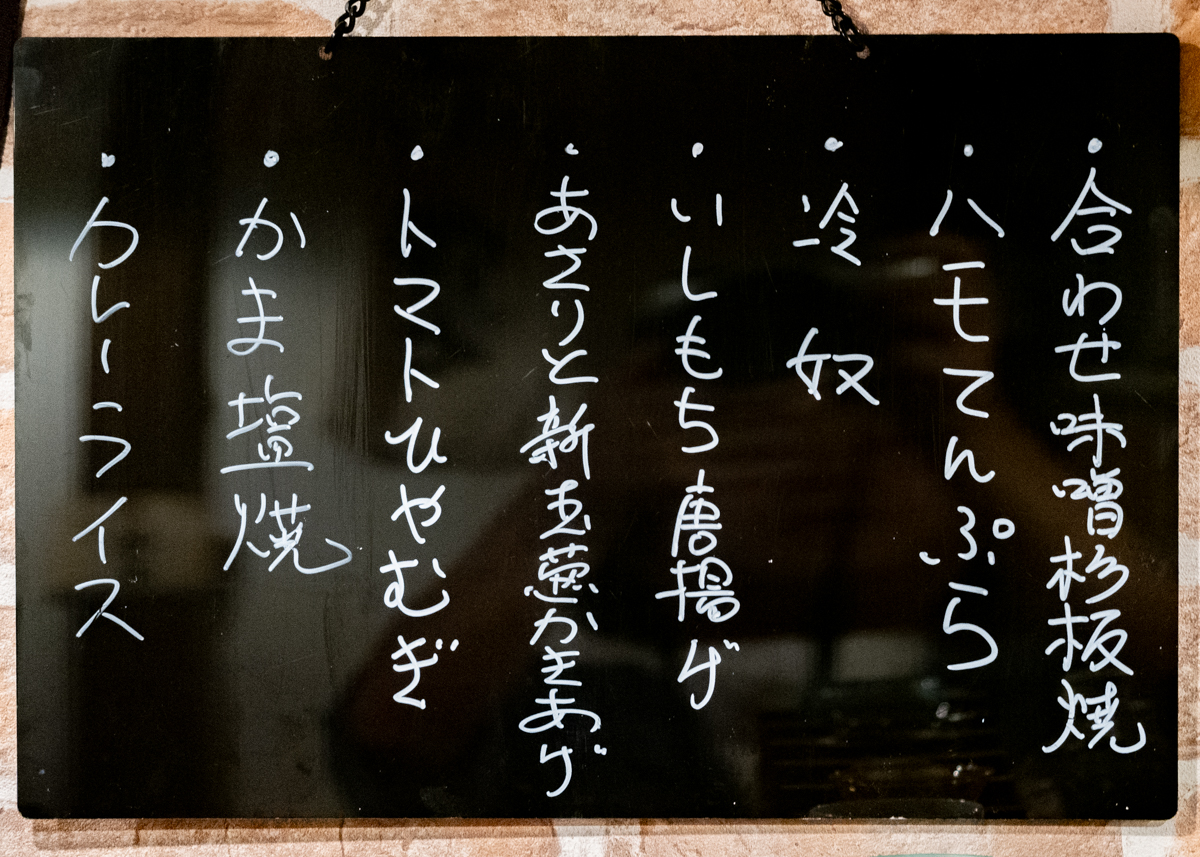 ・合わせ味噌杉板焼
・ハモてんぷら
・冷奴
・いしもち唐揚げ
・あさりと新玉葱かきあげ
・トマトひやむぎ
・かま塩焼
・カレーライス